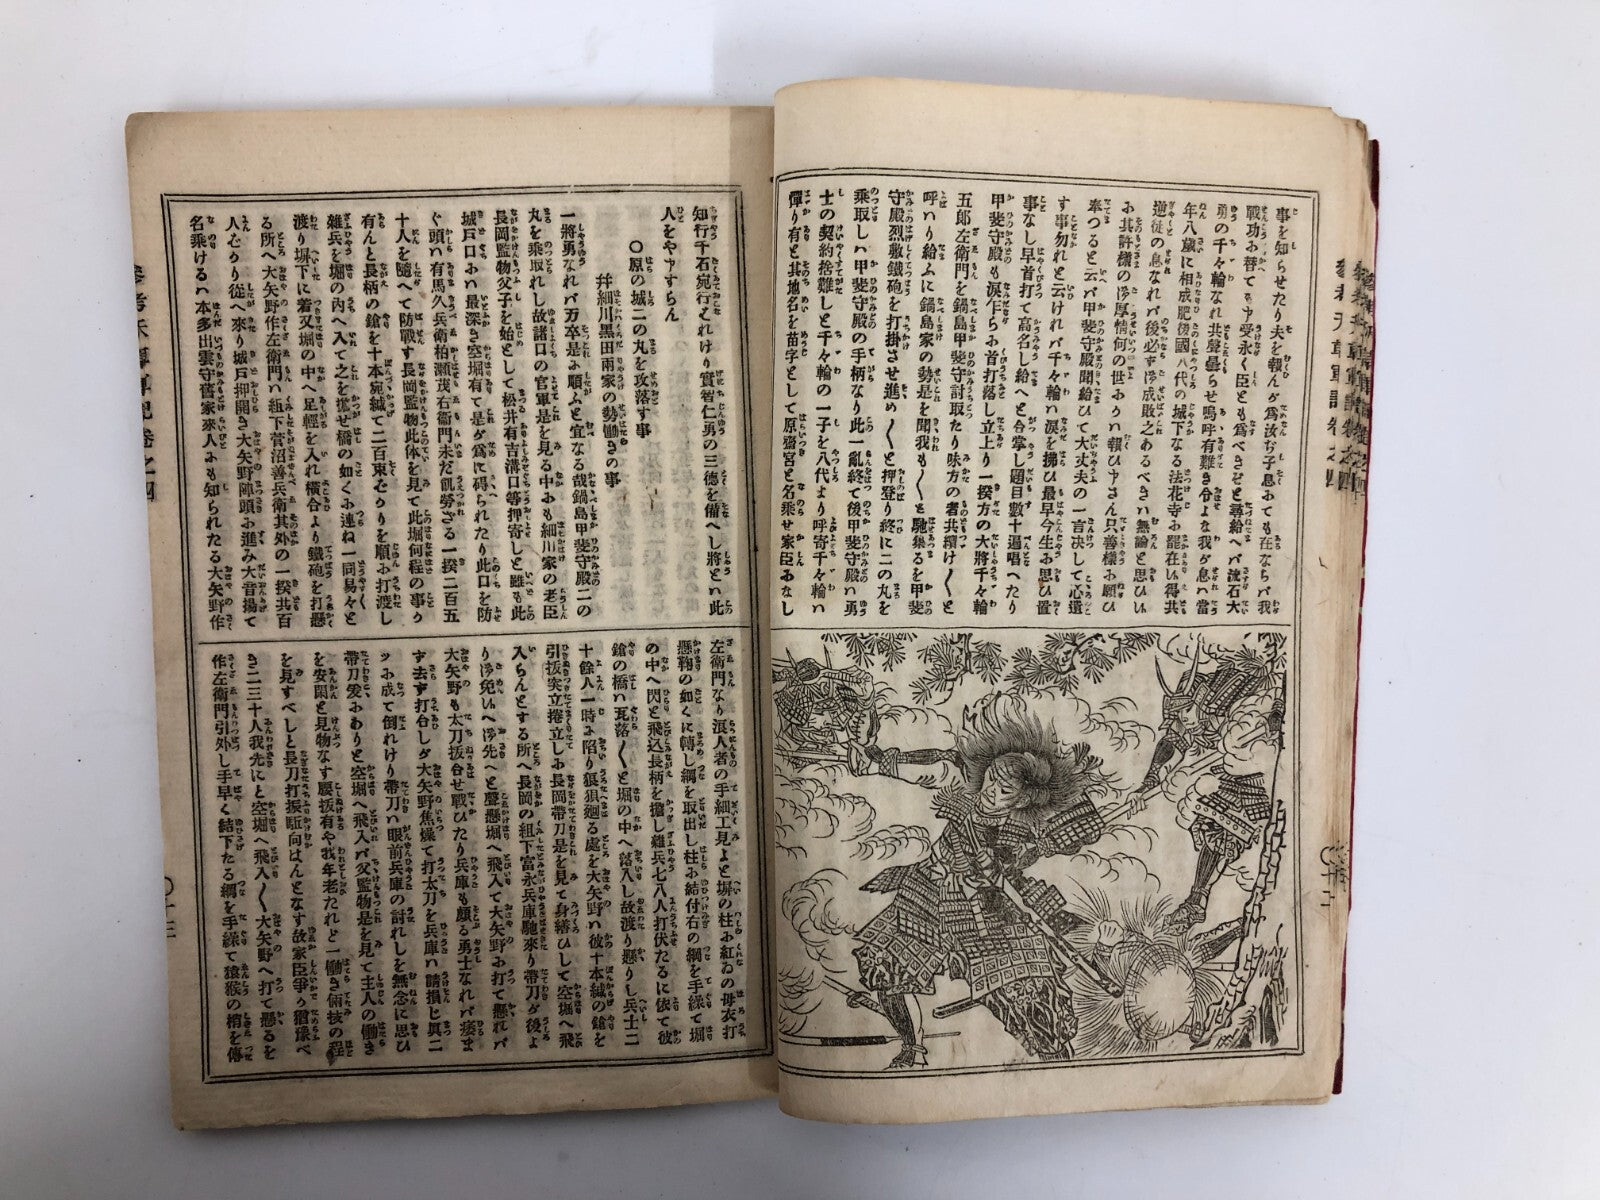 事を知らせたり夫を報んが爲汝ぢ子息おても在ならバ我
戰功お替て申受永く臣とも爲べきぞと尋給へバ流石大
勇の千々輪なれ共聲曇らせ嗚呼有難き合よな我が息ハ當
年八歳に相成肥後國八代の城下なる法花寺お罷在ゐ得共
逆徒の息なれバ後必ず御成敗之あるべきハ無論と思ひゐ
お其許様の御厚情何の世おゝり報ひ申さん只善様お願ひ
奉つると云バ甲斐守殿聞給ひて大丈夫の一言决して心遣
す事勿れと云けれバ千々輪ハ涙を拂ひ最早今生お思ひ置
事なし早首打て高名し給へと合掌し題目數十遍唱へたり
甲斐守殿も涙乍らお首打落し立上り一揆方の大將千々輪
五郎左衛門を鍋島甲斐守討取たり味方の者共續け〱と
呼ハり給ふに鍋島家の勢是を聞我も〱と馳集るを甲斐
守殿烈敷鐵砲を打掛させ進め〱と押登り終に二の丸を
乘取しハ甲斐守殿の手柄なり此一亂終て後甲斐守殿ハ勇
士の契約捨難しと千々輪の一子を八代より呼寄千々輪ハ
憚り有と其地名を苗字として原齋宮と名乘せ家臣おなし
知行千石宛行ハれけり實智仁勇の三德を備へし將とハ此
人をや申すらん
〇原の城二の丸を攻落す事
并細川黒田兩家の勢働きの事
一將勇なれバ万卒是お順ふと宜なる哉鍋島甲斐守殿二の
丸を乘取れし故諸口の官軍是を見る中おも細川家の老臣
長岡監物父子を始めとして松井有吉溝口等押寄しと雖も此
城戸口おハ最深き空堀有て是が爲に碍られたり此口を防
ぐ頭ハ有馬久兵衛柏瀬茂右衞門未だ飢勞ざる一揆二百五
十人を隨へて防戰す長岡監物此体を見て此堀何程の事り
有んと長柄の鎗を十本宛縅て二百束をゝりを順お打渡し
雜兵を堀の内へ入て之を擔せ橋の如くお連ね一同易々と
渡り塀下に着又堀の中へ足輕を入れ横合より鐵砲を打懸
る所へ大矢野作左衛門ハ組下菅沼善兵衛其外の一揆共百
人をゝり從へ來り城戸押開き大矢野陣頭お進み大音揚て
名乘けるハ本多出雲守舊家來人おも知られたる大矢野作
左衛門なり浪人者の手細工見よと塀の柱お紅ゐの母衣打
懸鞠の如くに轉し綱を取出し柱お結付右の綱を手繰て堀
の中へ閃と飛込長柄を擔し雜兵七八人打伏たるに依て彼
鎗の橋ハ瓦落〱と堀の中へ落入し故渡り懸りし兵士二
十餘人一時お陥り狼狽廻る處を大矢野ハ彼十本縅の鎗を
引扱突立捲立しお長岡帶刀是を見て身繕ひして空堀へ飛
入らんとする所へ長岡の組下富永兵庫馳來り帶刀が後よ
り御免ゐへ御先へと聲懸堀へ飛入て大矢野お打て懸れバ
大矢野も太刀扱合せ戰ひたり兵庫も頗る勇士なれバ瘻ま
ず去ず打合しが大矢野焦燥て打太刀を兵庫ハ請損じ眞二
ツお成て倒れけり帶刀ハ眼前兵庫の討れしを無念に思ひ
帶刀爰おありと空堀へ飛入バ父監物是を見て主人の働き
を安閑と見物なす腰抜有や我年老たれど一働き倆技の程
を見すべしと長刀打振駈向はんとなす故家臣爭ゥ猶豫べ
き二三十人我先にと空堀へ飛入〱大矢野へ打て懸るを
作左衛門引外し手早く結下たる綱を手繰て猿猴の梢を傳